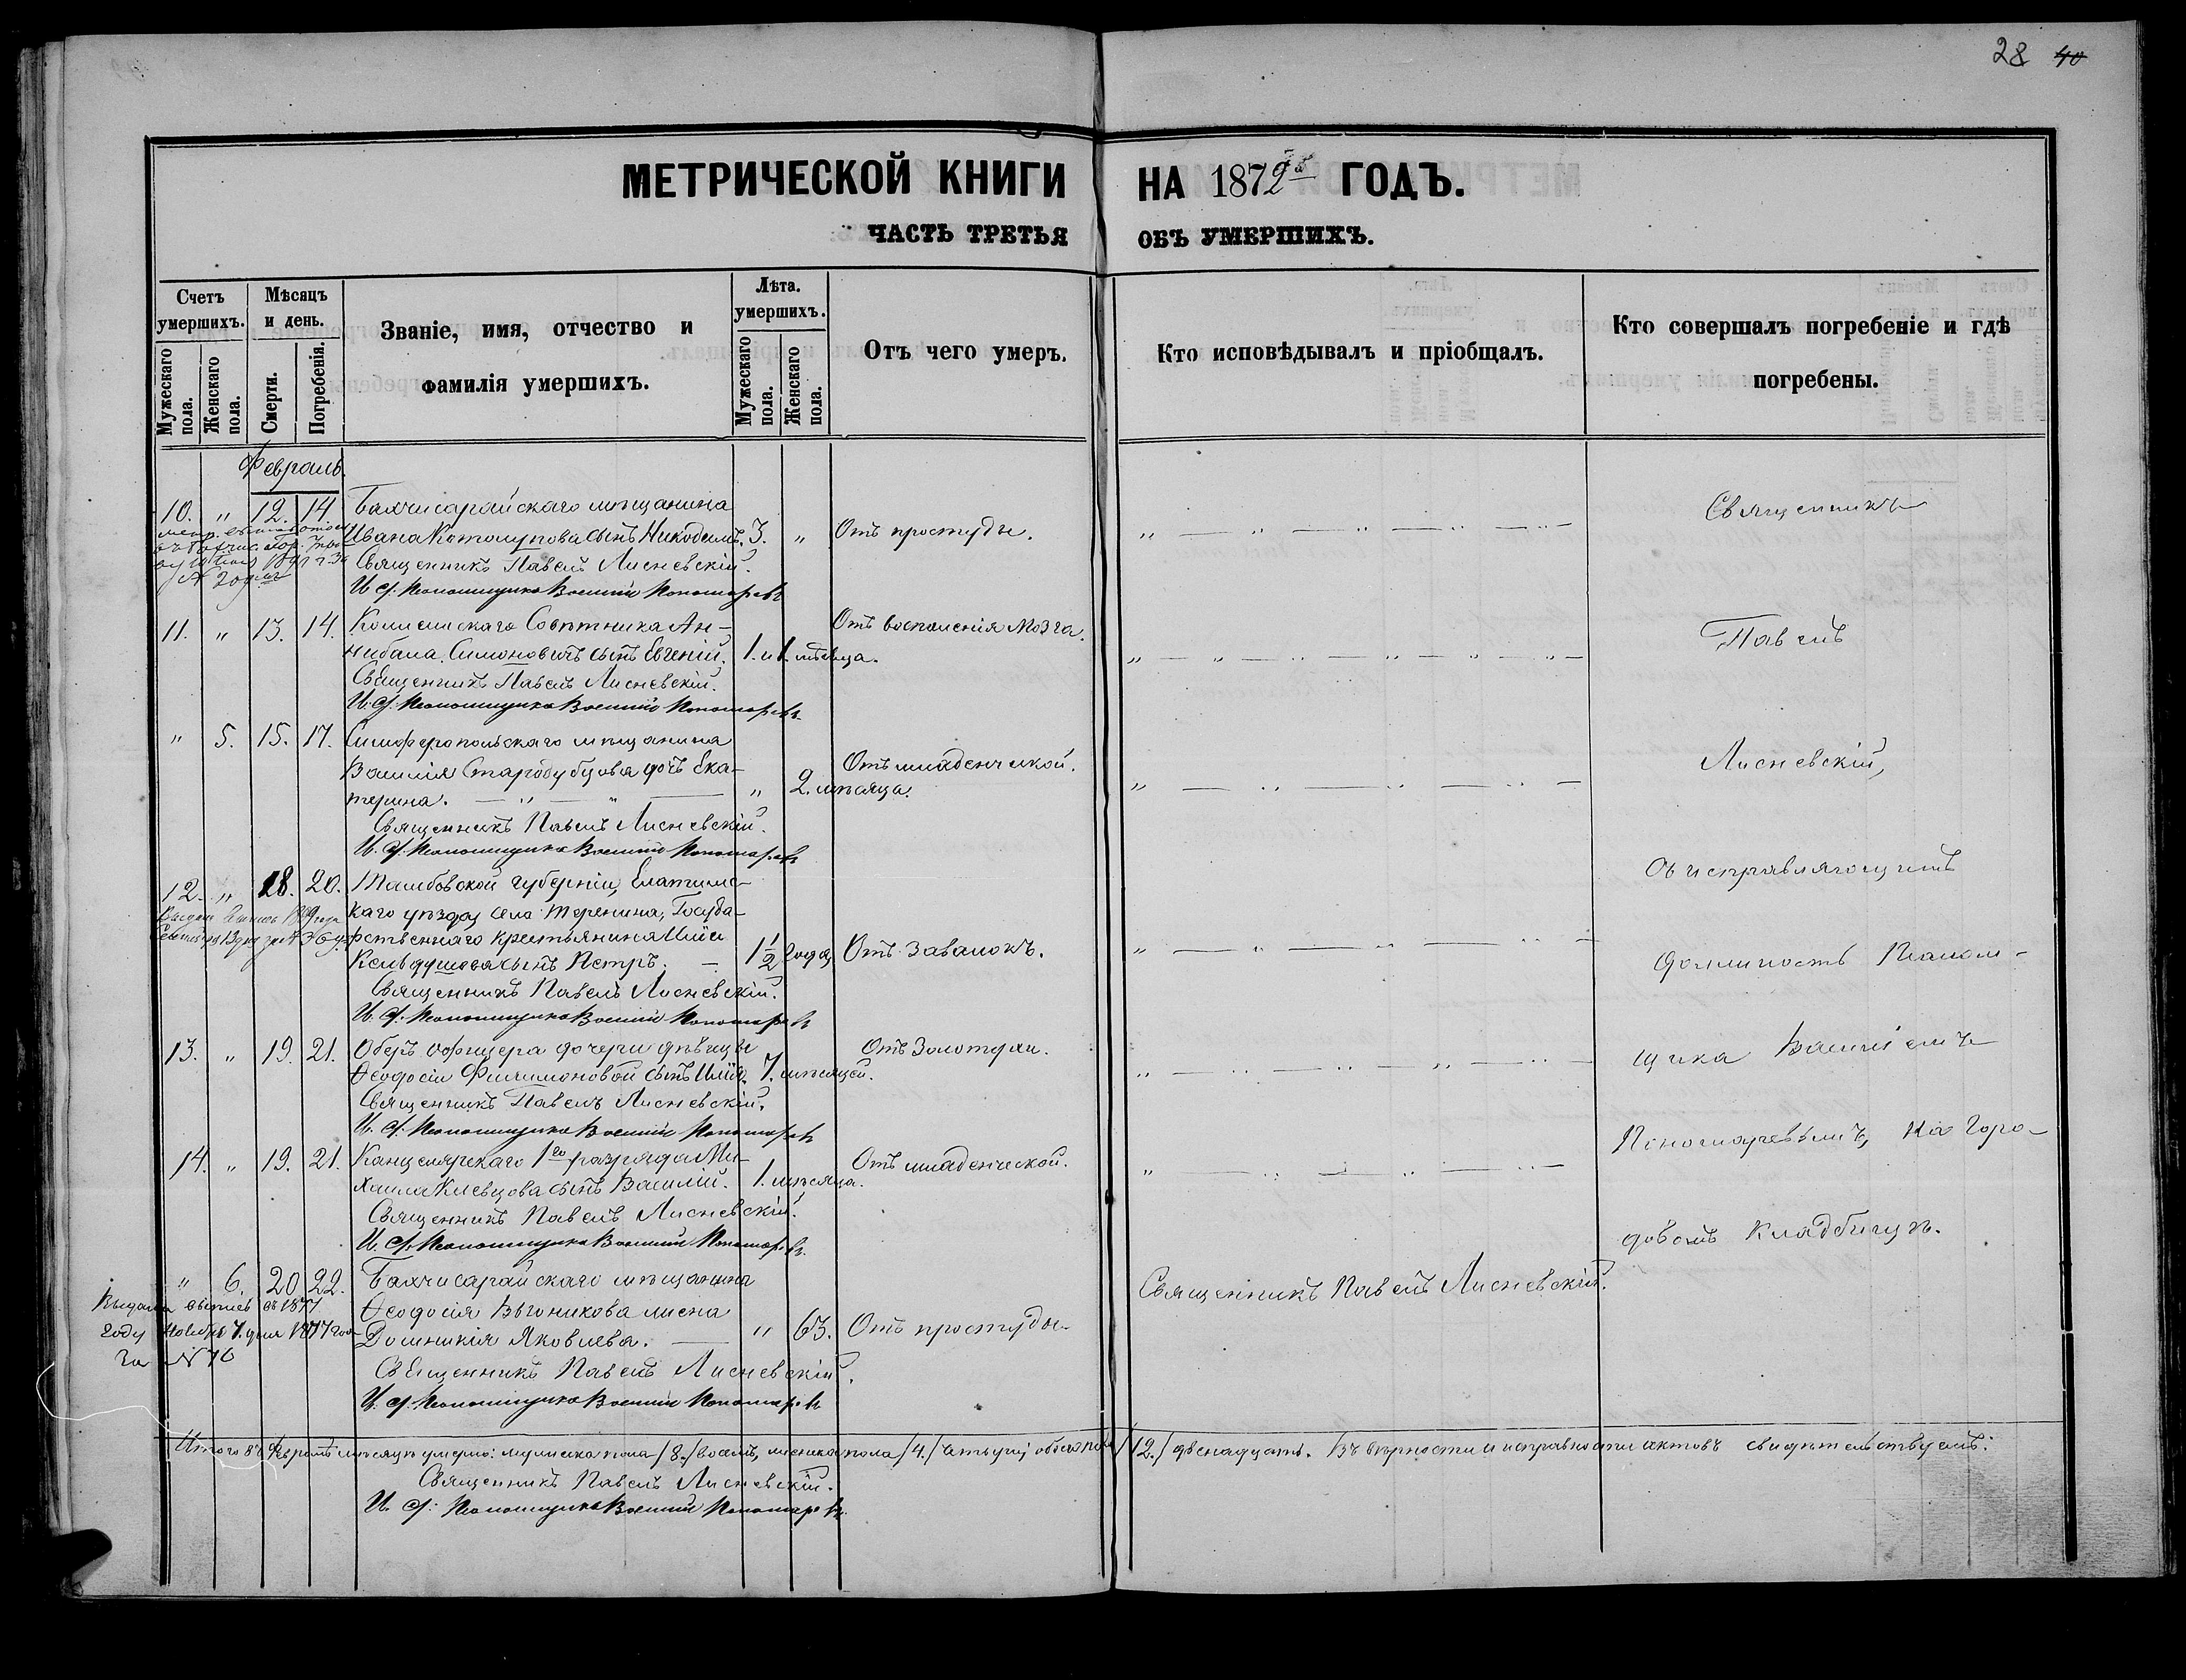 28 40
МЕТРИЧЕСКОЙ КНИГИ НА 1872й ГОДЪ.
ЧАСТЬ ТРЕТЬЯ ОБЪ УМЕРШИХЪ.
Счетъ умершихъ.
Мужескаго пола.
Женскаго пола.
Мѣсяцъ и день.
Смерти.
Погребенія.
Званіе, имя, отчество и
фамилія умершихъ.
Лѣта. умершихъ.
Мужескаго пола.
Женскаго пола.
Отъ чего умеръ.
Кто исповѣдывалъ и пріобщалъ.
Кто совершалъ погребеніе и гдѣ
погребены.
Февраль.
10. " 12. 14 Бахчисарайскаго мѣщанина
Ивана Котолупова сынъ Никодимъ. 3. " Отъ простуды.
Священникъ Павелъ Лисневскій.
И. д. Псаломщика Василій Пономаревъ
11. " 13. 14. Коллежскаго Совѣтника Ан-
нибала Симоновичъ сынъ Евгеній. 1. и 1. мѣсяца. Отъ воспаленія мозга.
Священникъ Павелъ Лисневскій.
И. д. Псаломщика Василій Пономаревъ
" 5. 15. 17. Симферопольскаго мѣщанина
Василія Стародубцова дочь Ека-
терина. " 2. мѣсяца. Отъ младенческой.
Священникъ Павелъ Лисневскій.
И. д. Псаломщика Василій Пономаревъ
12. " 18. 20. Тамбовской губерніи, Елатомс-
каго уѣзда, села Теренина, Госуда-
рственнаго крестьянина Иліи
сынъ Петръ. 1 1/2 года Отъ завалокъ.
Священникъ Павелъ Лисневскій.
И. д. Псаломщика Василій Пономаревъ
13. " 19. 21. Оберъ офицера дочери дѣвицы
Ѳеодосіи Филимоновой сынъ Илія. 7. мѣсяцей. Отъ Золотухи.
Священникъ Павелъ Лисневскій.
И. д. Псаломщика Василій Пономаревъ
14. " 19. 21. Канцелярскаго 1го разряда Ми-
хаила Клевцова сынъ Василій. 1. мѣсяца. Отъ младенческой.
Священникъ Павелъ Лисневскій.
И. д. Псаломщика Василій Пономаревъ
" 6. 20 22. Бахчисарайскаго мѣщанина
Ѳеодосія жена
Домникія Яковлева. " 63. Отъ простуды
Священникъ Павелъ Лисневскій.
И. д. Псаломщика Василій Пономаревъ
Выдана выпись въ 1877
году Ноября 7. дня 1877 го-
да № 76
Священникъ
Павелъ
Лисневскій,
съ исправляющимъ
должность Псалом-
щика Василіемъ
Пономаревымъ, на горо-
довомъ Кладбищѣ.
Священникъ Павелъ Лисневскій.
Итого въ Февралѣ мѣсяцѣ умерло: мужеска пола /8./ восемь, женска пола /4./ четыре, обоего пола /12./ двенадцать. Въ вѣрности и исправности актовъ свидѣтельствуемъ:
Священникъ Павелъ Лисневскій.
И. д. Псаломщика Василій Пономаревъ.